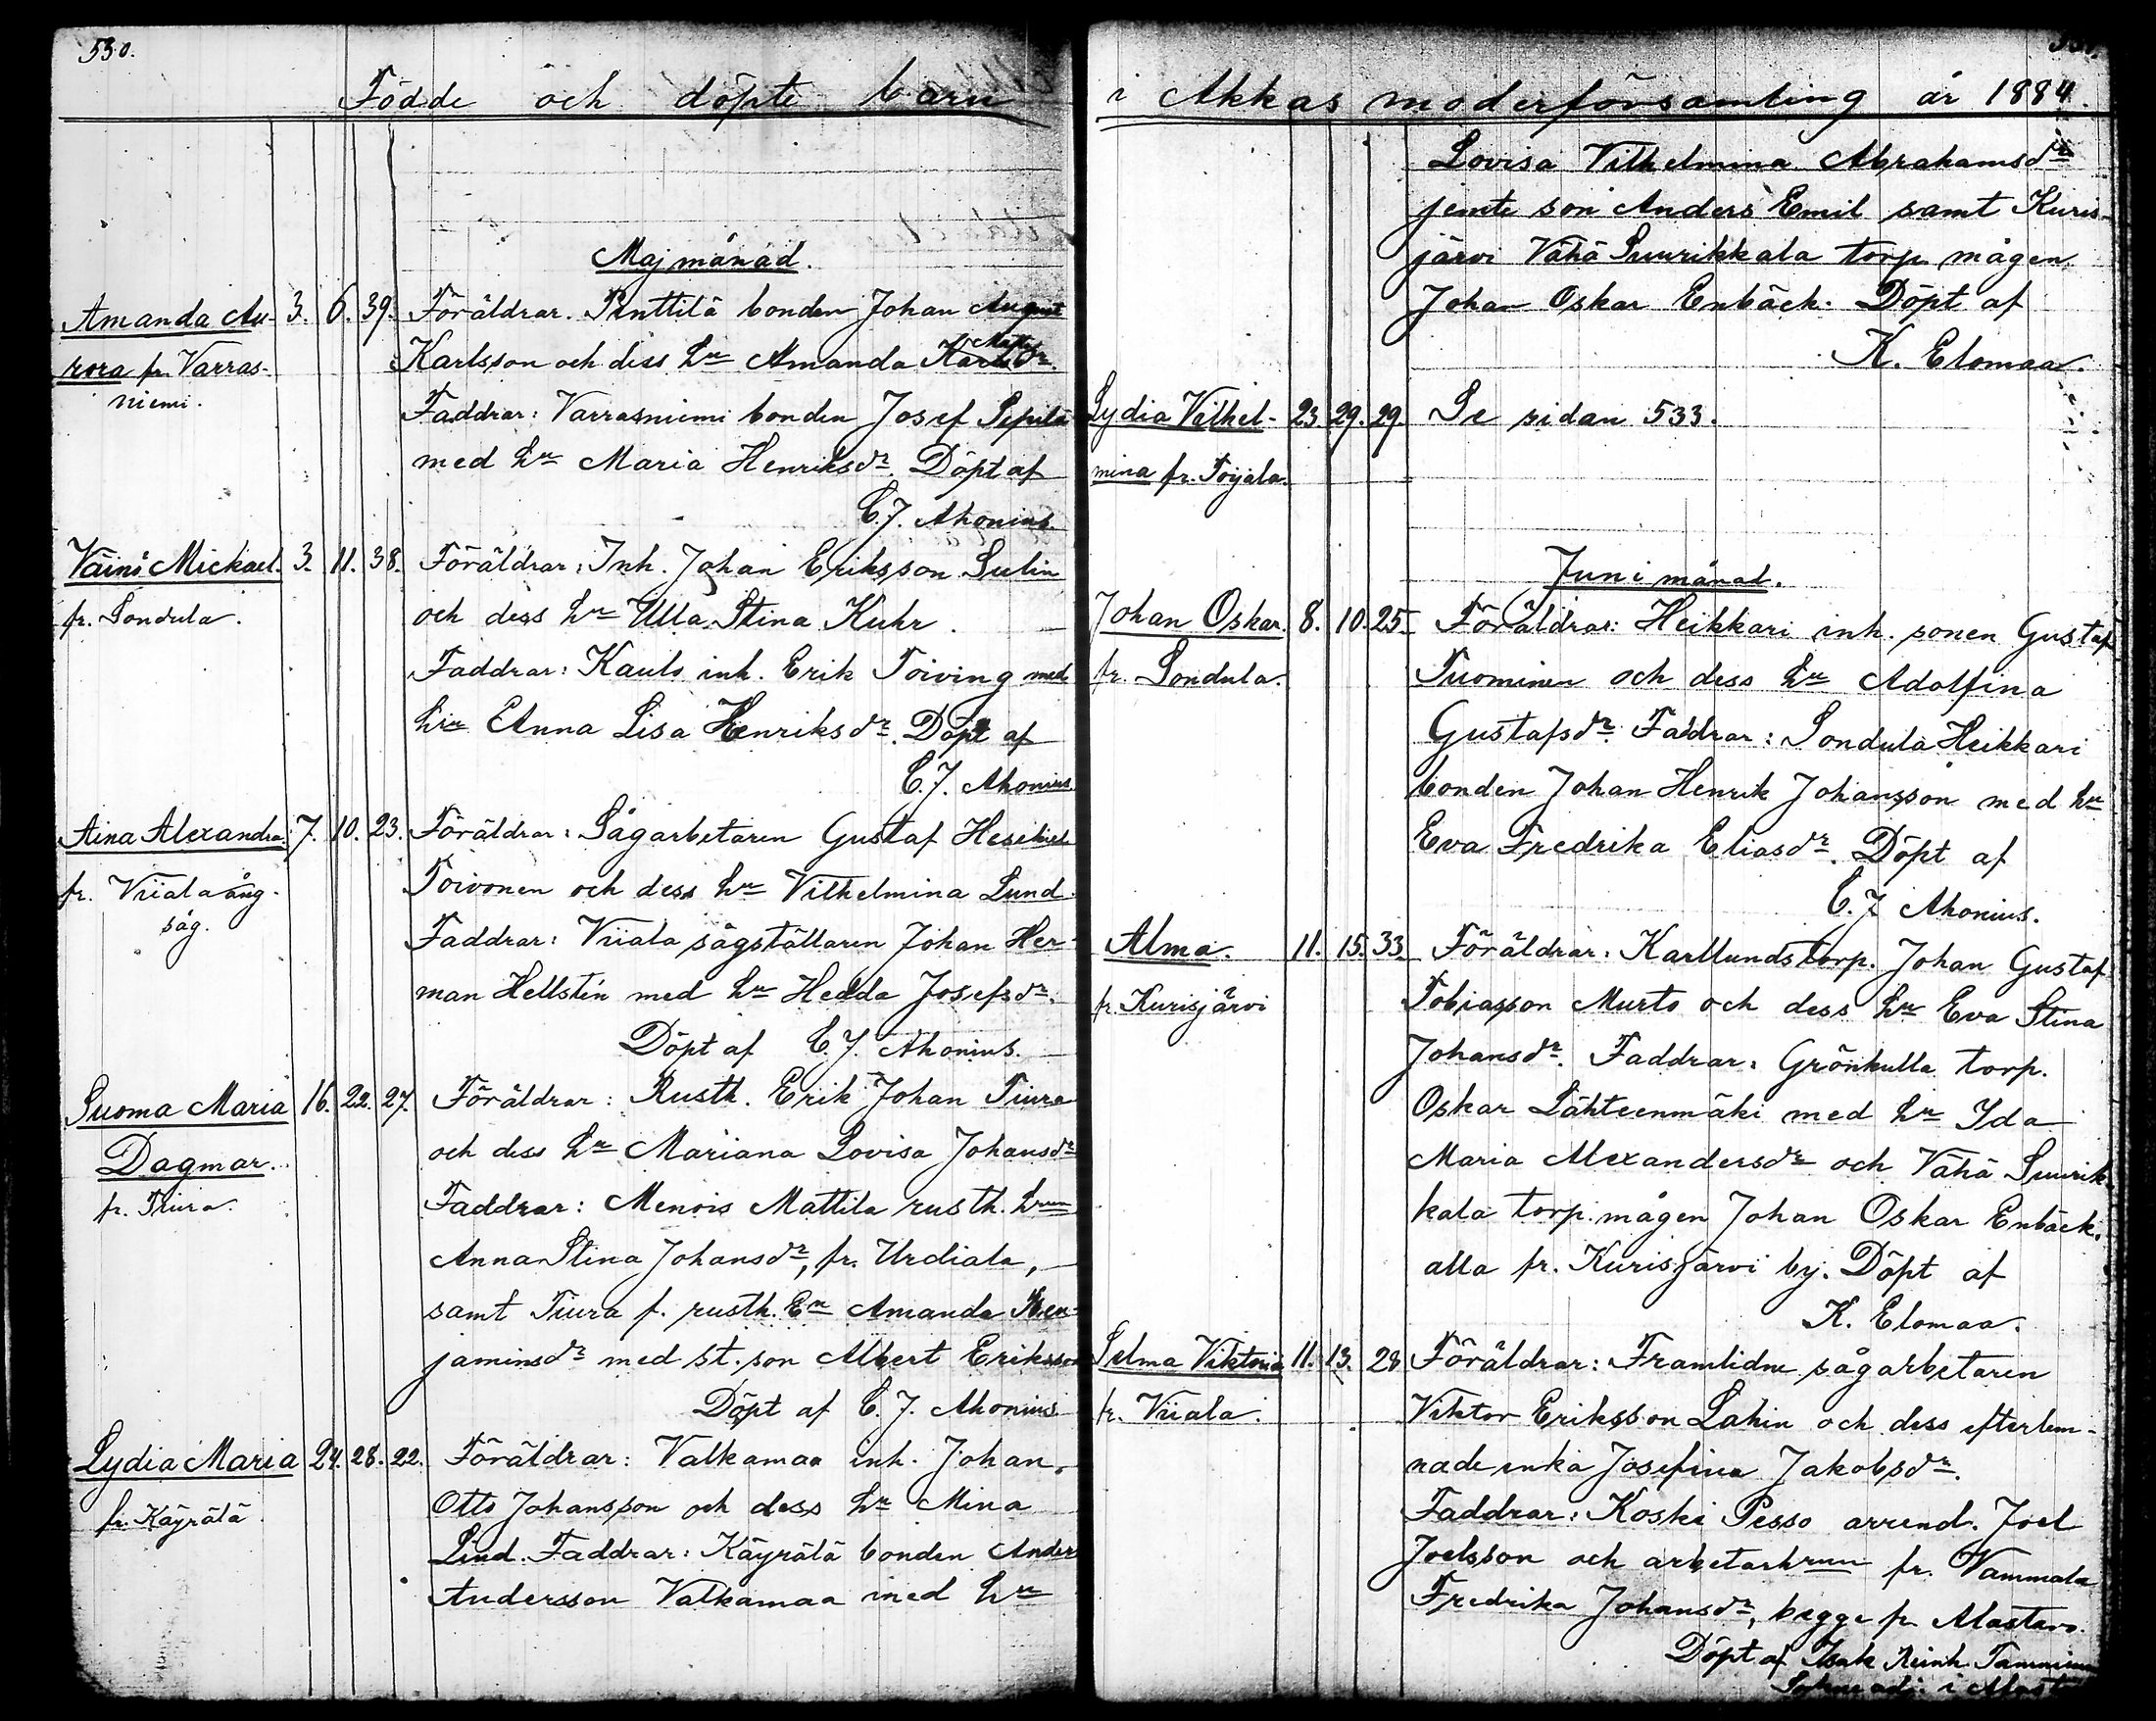 530.
Födde och döpte barn
Maj månad.
Amanda Au- 3. 6. 39. Föräldrar. Penttilä bonden Johan August
rora fr. Varras- Karlsson och dess hu Amanda
niemi.
Faddrar: Varrasniemi bonden Josef Seppilä
med hu Maria Henriksdr. Döpt af
C. J. Ahonius.
Väinö Mickael. 3. 11. 38. Föräldrar: Inh. Johan Eriksson Sulin
fr. Sondula. och dess hu Ulla Stina Kuhr.
Faddrar: Kauls inh. Erik Toiving med
hu Anna Lisa Henriksdr. Döpt af
C. J. Ahonius.
Aina Alexandra 7. 10. 23. Föräldrar: Sågarbetaren Gustaf Hesekiel
fr. Viiala ång- Toivonen och dess hu Vilhelmina Lund.
såg.
Faddrar: Viiala sågställaren Johan Her-
man Hellstén med hu Hedda Josefsdr.
Döpt af C. J. Ahonius.
Suoma Maria 16. 22. 27. Föräldrar: Rusth. Erik Johan Tiura
Dagmar. och dess hu Mariana Lovisa Johansdr
fr. Tiura. Faddrar: Menois Mattila rusth. hrun
Anna Stina Johansdr, fr. Urdiala,
samt Tiura f. rusth. Eu Amanda Ben-
jaminsdr med st. son Albert Eriksson
Döpt af C. J. Ahonius
Lydia Maria 24. 28. 22. Föräldrar: Valkamaa inh. Johan
fr. Käyrälä. Otto Johansson och dess hu Mina
Lind. Faddrar: Käyrälä bonden Anders
Andersson Valkamaa med hu
i Akkas moderförsamling år 1884.
Lovisa Vilhelmina Abrahamsdr
jemte son Anders Emil samt Kuris-
järvi Vähä Suurikkala torp. mågen
Johan Oskar Enbäck. Döpt af
K. Elomaa.
Lydia Vilhel- 23. 29. 29. Se sidan 533.
mina fr. Toijala.
Juni månad.
Johan Oskar. 8. 10. 25. Föräldrar: Heikkari inh. sonen Gustaf
fr. Sondula. Tuominen och dess hu Adolfina
Gustafsdr. Faddrar: Sondula Heikkari
bonden Johan Henrik Johansson med hu
Eva Fredrika Eliasdr. Döpt af
C. J. Ahonius.
Alma. 11. 15. 33. Föräldrar: Karllunds torp. Johan Gustaf
fr. Kurisjärvi Tobiasson Murto och dess hu Eva Stina
Johansdr. Faddrar: Grönkulla torp.
Oskar Lähteenmäki med hu Ida
Maria Alexandersdr och Vähä Suurik-
kala torp. mågen Johan Oskar Enbäck.
alla fr. Kurisjärvi by. Döpt af
K. Elomaa.
Selma Viktoria 11. 13. 28 Föräldrar: Framlidne sågarbetaren
fr. Viiala. Viktor Eriksson Lahin och dess efterlem-
nade enka Josefina Jakobsdr.
Faddrar: Koski Pesso arrend. Joel
Joelsson och arbetarhrun fr. Vammala
Fredrika Johansdr, begge fr. Alastaro.
Döpt af Isak Reinh. Tamminen